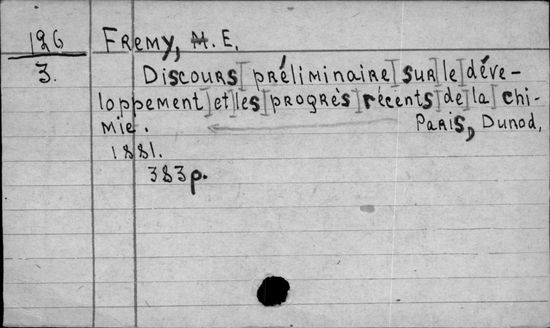 126 FREMY, M. E.
3. Discours préliminaire sur le déve-
loppement et les progrès récents de la chi-
mie. Paris, Dunod,
1881.
383 p.